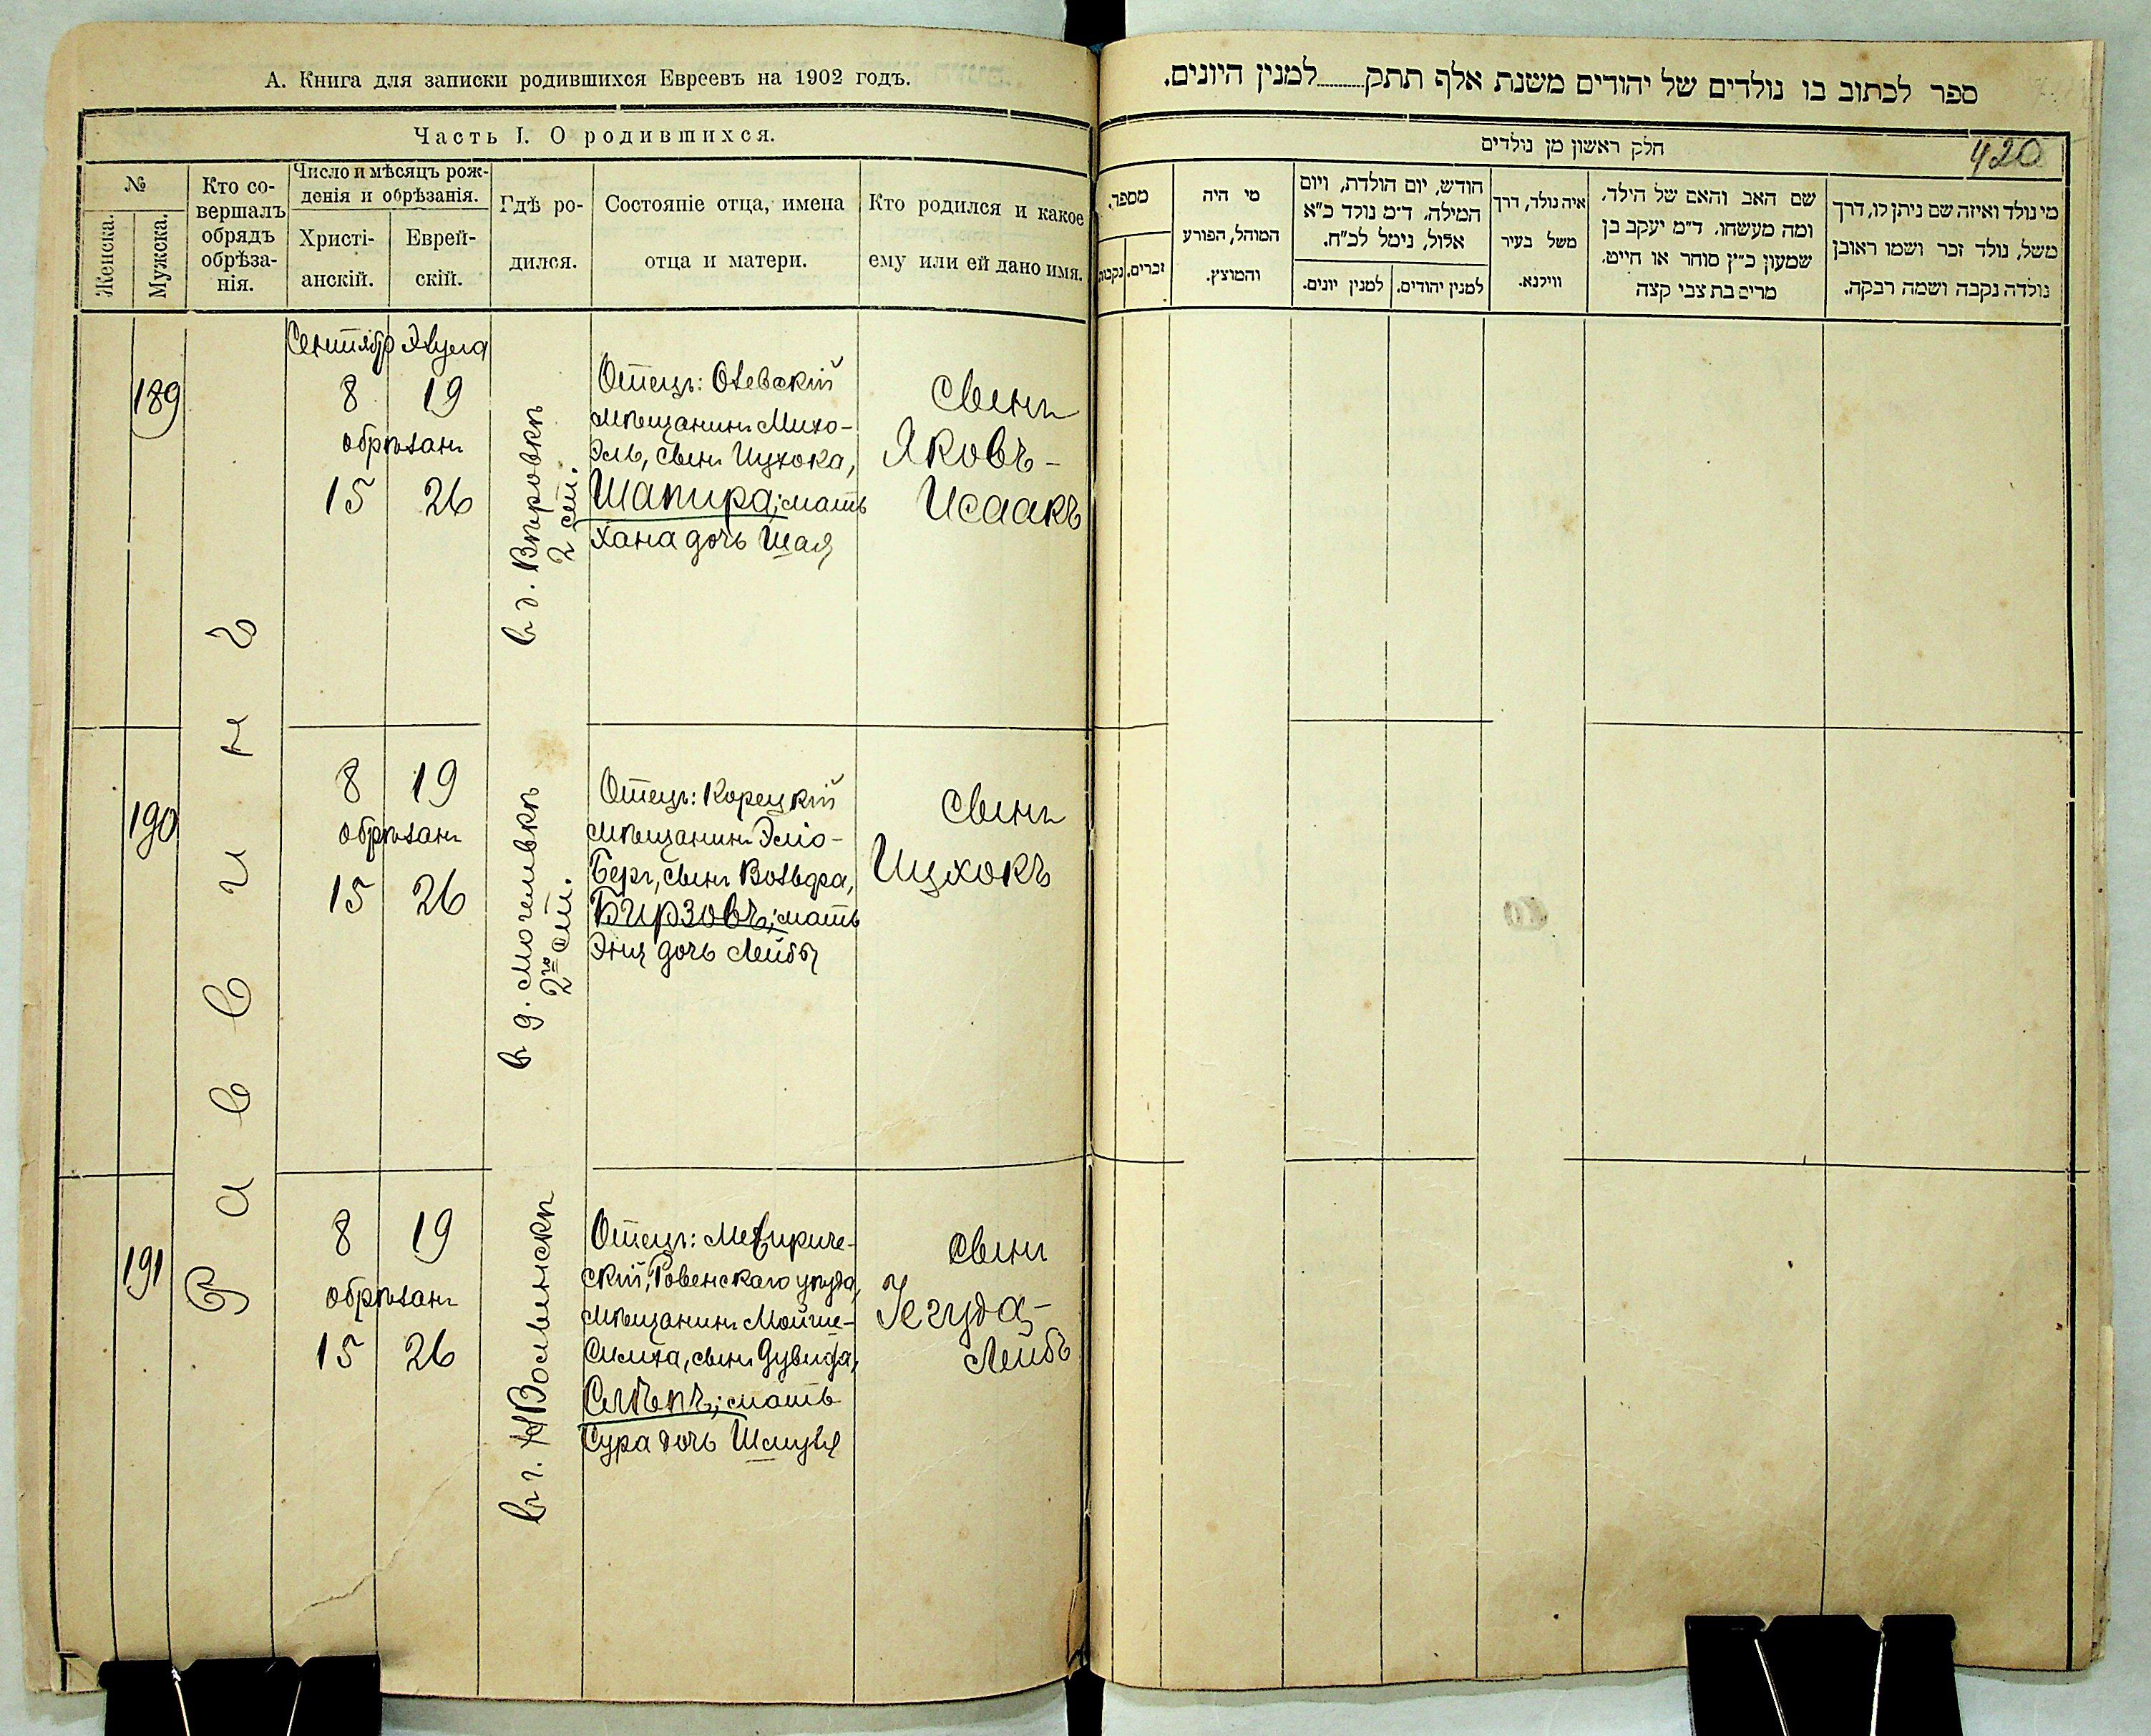 А. Книга для записки родившихся Евреевъ на 1902 годъ.
Часть I. О родившихся.
№
Женска.
Мужска.
Кто со-
вершалъ
обрядъ
обрѣза-
нія.
Число и мѣсяцъ рож-
денія и обрѣзанія.
Христі-
анскій.
Еврей-
скій.
Гдѣ ро-
дился.
Состояніе отца, имена
отца и матери.
Кто родился и какое
ему или ей дано имя.
Раввинъ
189
Сентябр Элула
8 19
обрѣзанъ
15 26
въ д. Вѣровкѣ
2 ст.
Отецъ: Олевскій
мѣщанинъ Михо-
Эль, сынъ Ицхока,
Шапира; мать
Хана дочь Шая
сынъ
Яковъ-
Исаакъ
190
8 19
обрѣзанъ
15 26
въ д. Могелывкѣ
2го ст.
Отецъ: Корецкій
мѣщанинъ Эліо-
Беръ, сынъ Вольфа,
Бирзовъ; мать
Эня дочь Лейбы
сынъ
Ицхокъ
191
8 19
обрѣзанъ
15 26
въ г. НВолынскѣ
Отецъ: Межириче-
скій, Ровенскаго уѣзда,
мѣщанинъ Мойше-
Симха, сынъ Дувида,
мать
Сура дочь Шмуля
сынъ
Іегуда-
Лейбъ
ספר לכתוב בו נולדים של יהודים משנת אלף תתק........למנין היונים.
חלק ראשון מן נולדים
420
מספר.
זכרים.
נקבות
מי היה
המוהל, הפורע
והמוצץ.
חודש, יום הולדת, ויום
המילה. ד״מ נולד כ״א
אלול, נימל לכ״ח.
למנין יונים.
למנין יהודים.
איה נולד, דרך
משל בעיר
ווילנא.
שם האב והאם של הילד,
ומה מעשהו. ד״מ יעקב בן
שמעון כ״ץ סוחר או חייט.
מרים בת צבי קצה
מי נולד ואיזה שם ניתן לו, דרך
משל, נולד זכר ושמו ראובן
נולדה נקבה ושמה רבקה.